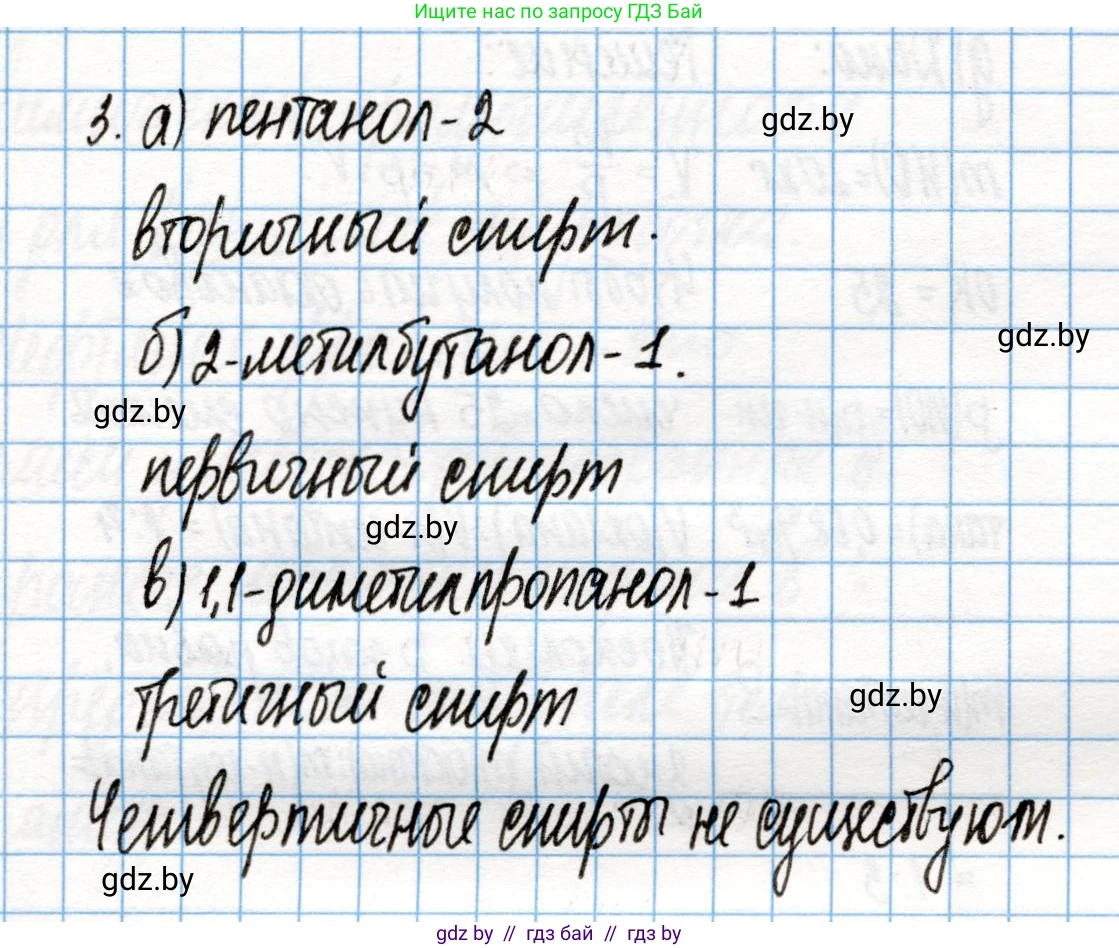 Ищите нас по запросу ГДЗ Бай
3. а) пентанол-2
gdz.by
вторичный спирт.
б) 2-метилбутанол-1.
gdz.by
gdz.by
первичный спирт
gdz.by
в) 1,1-диметилпропанол-1
третичный спирт
gdz.by
Четвертичные спирты не существуют.
gdz.by
gdz.by // гдз бай // gdz.by